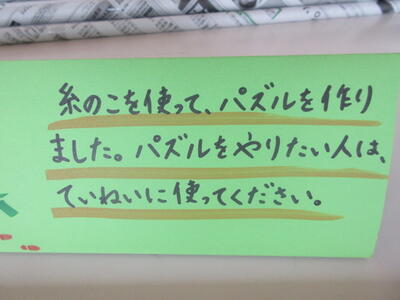 糸のこを使って、パズルを作り
ました。パズルをやりたい人は、
ていねいに使ってください。